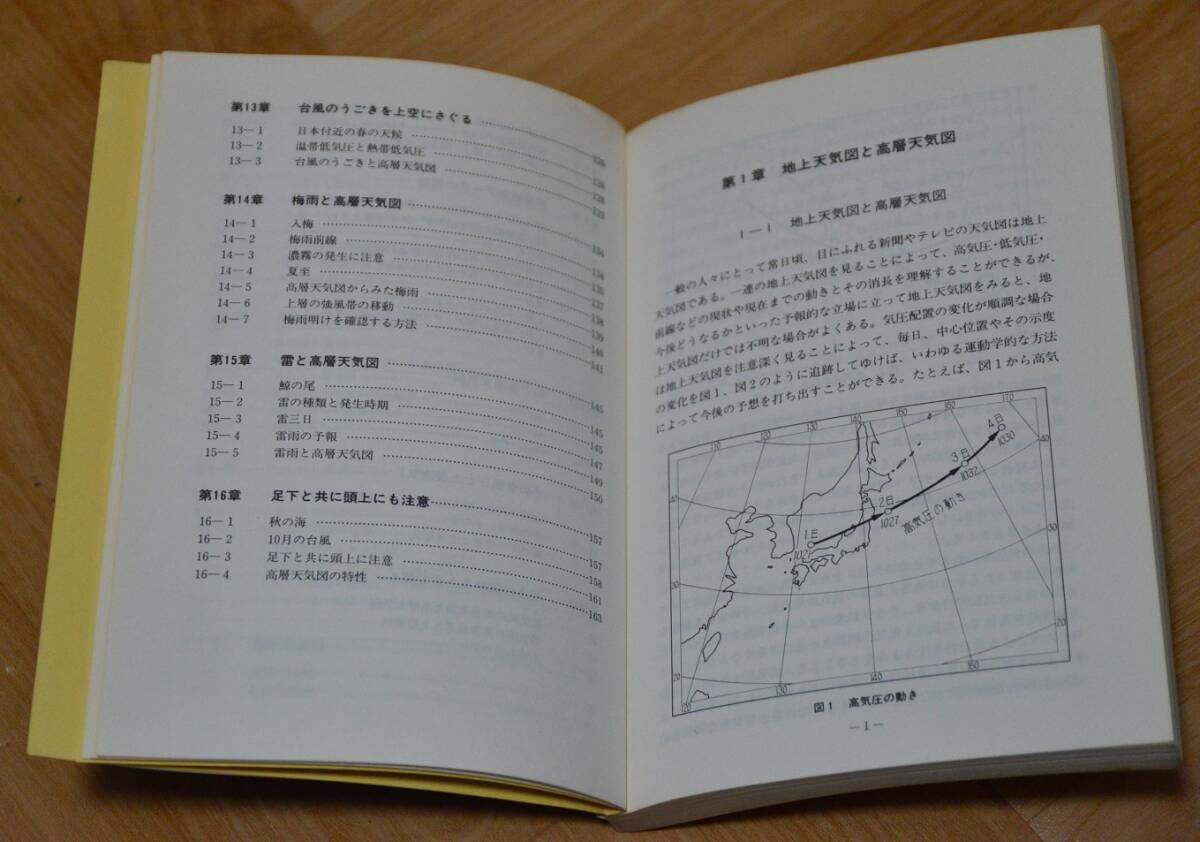 第13章 台風のうごきを上空にさぐる ……126
13－1 日本付近の春の天候 ……126
13－2 温帯低気圧と熱帯低気圧 ……128
13－3 台風のうごきと高層天気図 ……129
第14章 梅雨と高層天気図 ……134
14－1 入梅 ……134
14－2 梅雨前線 ……135
14－3 濃霧の発生に注意 ……137
14－4 夏至 ……138
14－5 高層天気図からみた梅雨 ……139
14－6 上層の強風帯の移動 ……140
14－7 梅雨明けを確認する方法 ……141
第15章 雷と高層天気図 ……145
15－1 鯨の尾 ……145
15－2 雷の種類と発生時期 ……145
15－3 雷三日 ……147
15－4 雷雨の予報 ……149
15－5 雷雨と高層天気図 ……150
第16章 足下と共に頭上にも注意 ……157
16－1 秋の海 ……157
16－2 10月の台風 ……158
16－3 足下と共に頭上に注意 ……161
16－4 高層天気図の特性 ……163
第1章 地上天気図と高層天気図
1－1 地上天気図と高層天気図
一般の人々にとって常日頃、目にふれる新聞やテレビの天気図は地上
天気図である。一連の地上天気図を見ることによって、高気圧・低気圧・
前線などの現状や現在までの動きとその消長を理解することができるが、
今後どうなるかといった予報的な立場に立って地上天気図をみると、地
上天気図だけでは不明な場合がよくある。気圧配置の変化が順調な場合
は地上天気図を注意深く見ることによって、毎日、中心位置やその示度
の変化を図1、図2のように追跡してゆけば、いわゆる運動学的な方法
によって今後の予想を打ち出すことができる。たとえば、図1から高気
110 120 130 140 150 160 170
4日
1030
40
3日
1032
40
2日
1027
高気圧の動き
30
1日
1021
30
20
20
120 130 140 150
図1 高気圧の動き
―1―